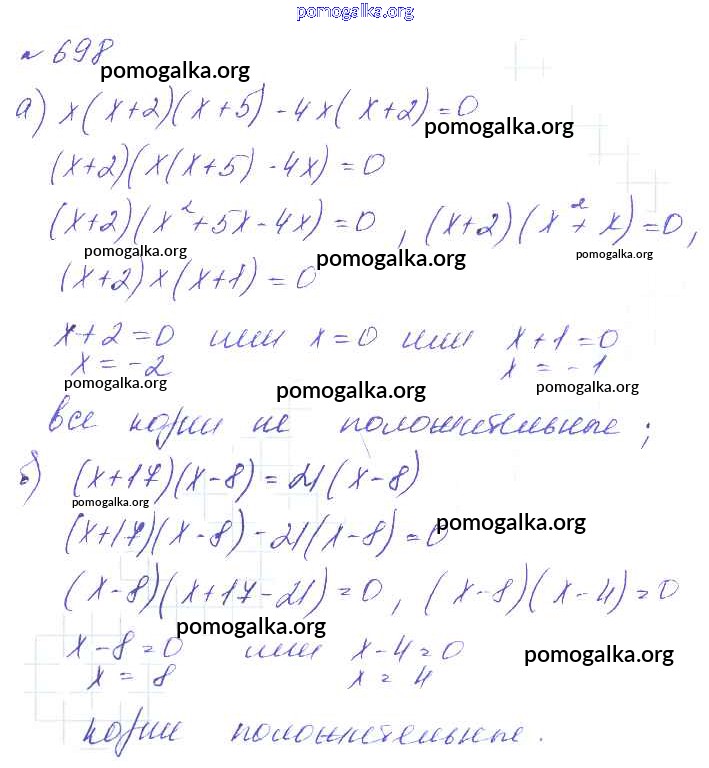 pomogalka.org
№ 698
pomogalka.org
а) x(x+2)(x+5) - 4x(x+2) = 0
pomogalka.org
(x+2)(x(x+5) - 4x) = 0
(x+2)(x²+5x-4x) = 0, (x+2)(x²+x) = 0,
pomogalka.org pomogalka.org pomogalka.org
(x+2)x(x+1) = 0
x+2=0 или x=0 или x+1=0
x = -2 x = -1
pomogalka.org pomogalka.org pomogalka.org
все корни не положительные;
б) (x+17)(x-8) = 21(x-8)
pomogalka.org
(x+17)(x-8) - 21(x-8) = 0
pomogalka.org
(x-8)(x+17-21) = 0, (x-8)(x-4) = 0
pomogalka.org
x-8=0 или x-4=0
pomogalka.org
x = 8 x = 4
корни положительные.